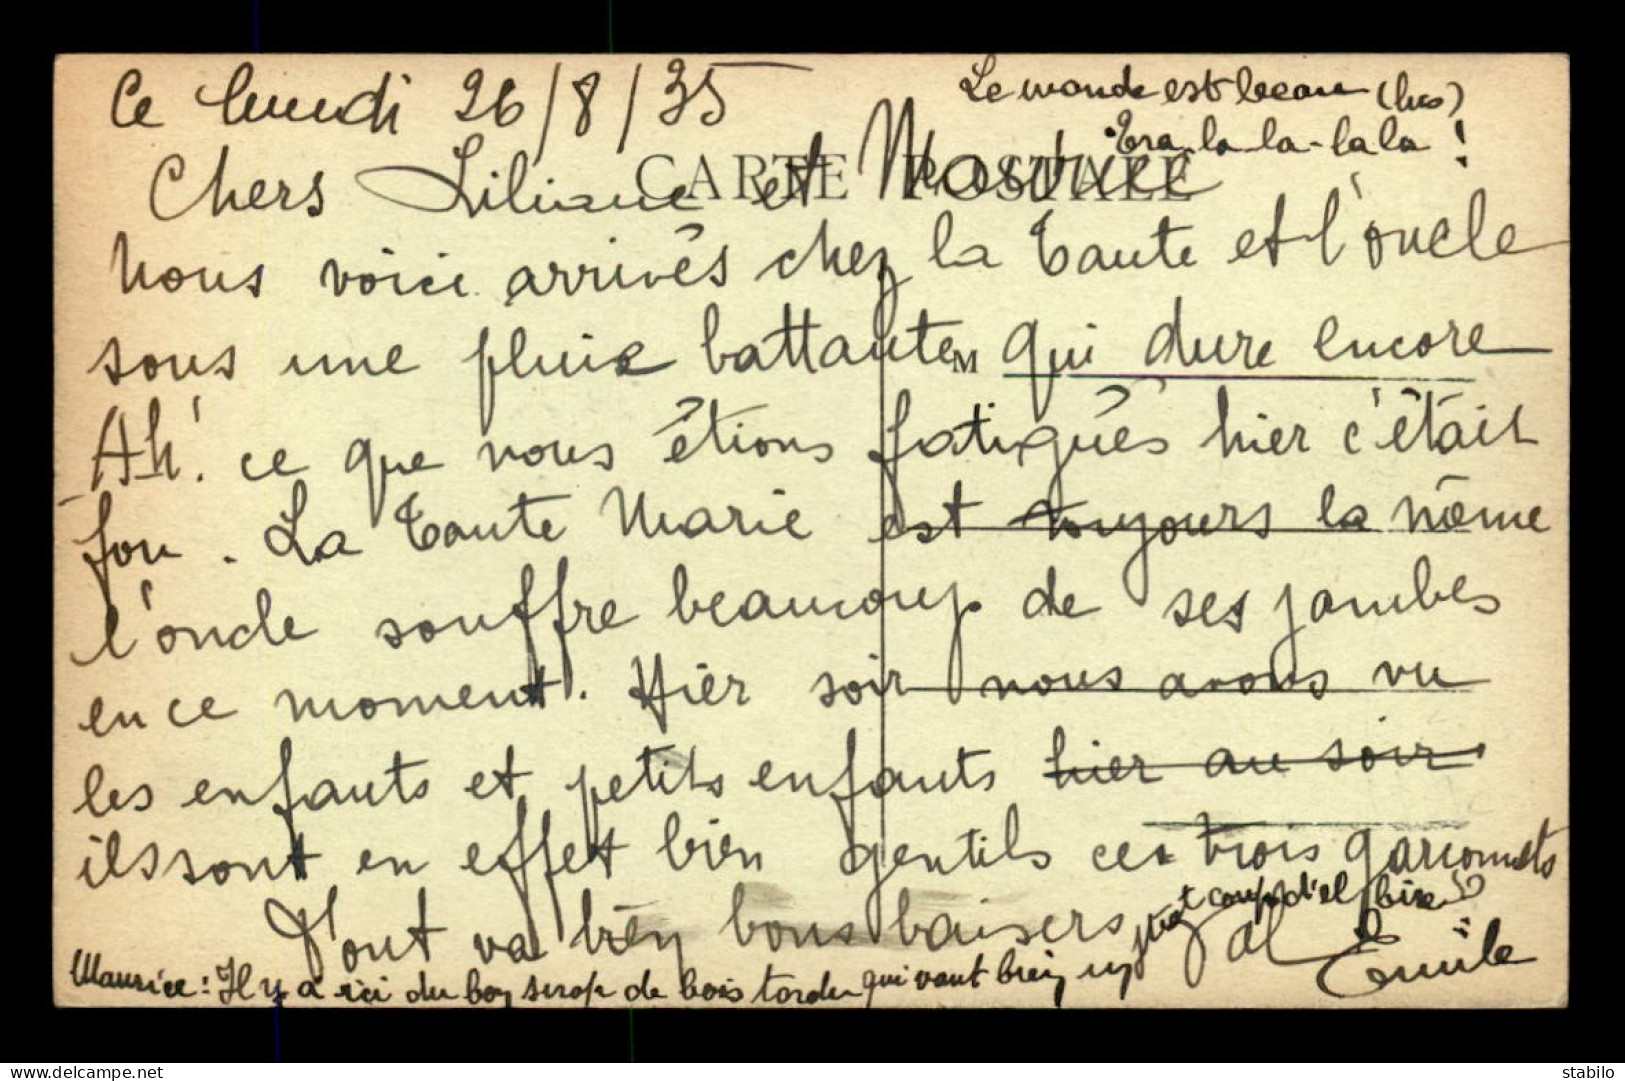 Ce lundi 26/8/35
Le monde est beau (bis)
Tra-la-la-la la !
CARTE POSTALE
Chers Liliane et Maurice
Nous voici arrivés chez la tante et l'oncle
sous une pluie battante qui dure encore
M
Ah! ce que nous étions fatigués hier c'était
fou. La tante Marie est toujours la même
l'oncle souffre beaucoup de ses jambes
en ce moment. Hier soir nous avons vu
les enfants et petits enfants hier au soir
ils sont en effet bien gentils ces trois garçonnets
Tout va bien bons baisers
Emile
Maurice: Il y a ici du bon sirop de bois tordu qui vaut bien un petit coup d'el